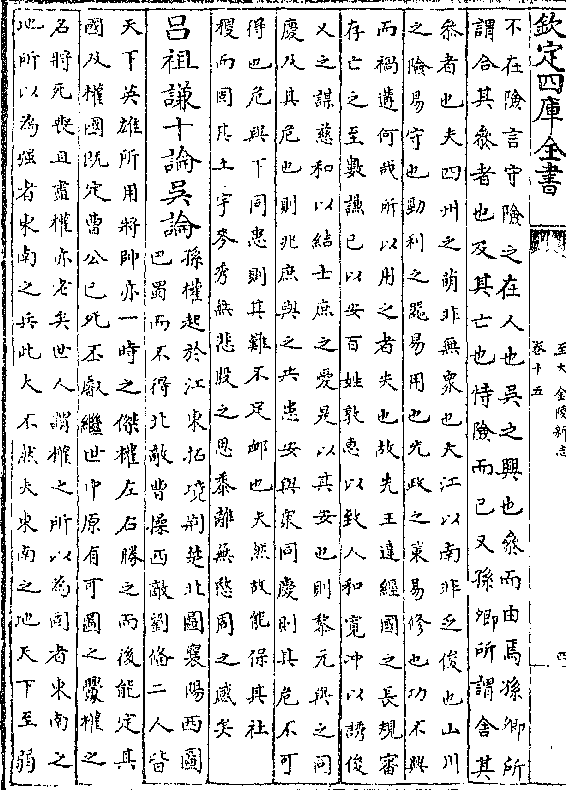 欽定四庫全書
至大金陵新志
卷十五
四
不在險言守險之在人也吳之興也參而由焉孫卿所
謂合其參者也及其亡也恃險而已又孫卿所謂舍其
參者也夫四州之萌非無衆也大江以南非乏俊也山川
之險易守也勁利之器易用也先政之策易修也功不興
而禍遘何哉所以用之者失也故先王達經國之長規審
存亡之至數謙已以安百姓敦惠以致人和寛冲以誘俊
乂之謀慈和以結士庶之愛是以其安也則黎元與之同
慶及其危也則兆庶與之共患安與衆同慶則其危不可
得也危與下同患則其難不足卹也夫然故能保其社
稷而固其土宇麥秀無悲殷之思黍離無愍周之感矣
呂祖謙十論吳論
孫權起於江東拓境荆楚北圖襄陽西圖
巴蜀而不得北敵曹操西敵劉備二人皆
天下英雄所用將帥亦一時之傑權左右勝之而後能定其
國及權國既定曹公已死丕叡繼世中原有可圖之釁權之
名將死喪且盡權亦老矣世人謂權之所以為固者東南之
地所以為强者東南之兵此大不然夫東南之地天下至弱